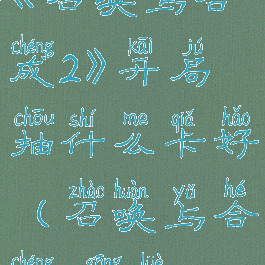 《召唤与合
chéng kāi jú
成2》开局
chōu shí me qiǎ hǎo
抽什么卡好
zhào huàn yǔ hé
（召唤与合
chéng gōng lüè